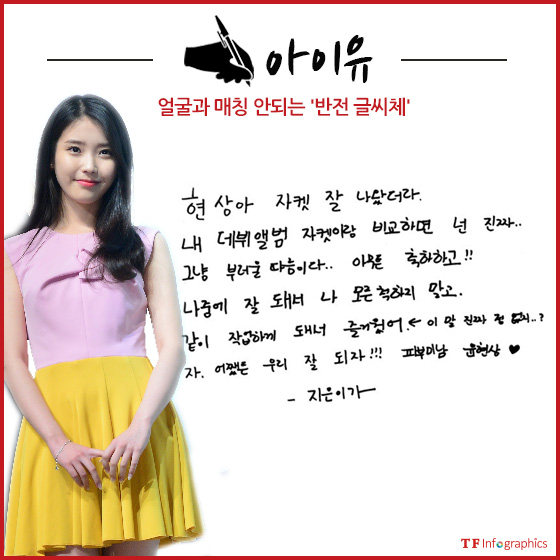 아이유
얼굴과 매칭 안되는 '반전 글씨체'
현상아 자켓 잘 나왔더라.
내 데뷔앨범 자켓이랑 비교하면 넌 진짜..
그냥 부러울 따름이다.. 아무튼 축하하고!!
나중에 잘 돼서 나 모른척하지 말고.
같이 작업하게 돼서 즐거웠어. ← 이 말 진짜 전 없지..?
자. 어쨌든 우리 잘 되자!!! 피부미남 윤현상 ♥
- 지은이가
TF Infographics